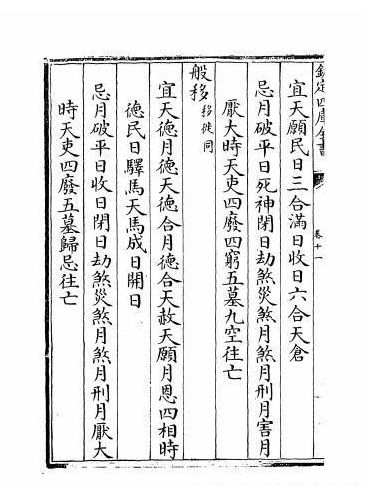 欽定四庫全書
卷十一
宜天願民日三合滿日收日六合天倉
忌月破平日死神閉日劫煞災煞月煞月刑月害月
厭大時天吏四廢四窮五墓九空往亡
般移移徙同
宜天德月德天德合月德合天赦天願月恩四相時
德民日驛馬天馬成日開日
忌月破平日收日閉日劫煞災煞月煞月刑月厭大
時天吏四廢五墓歸忌往亡